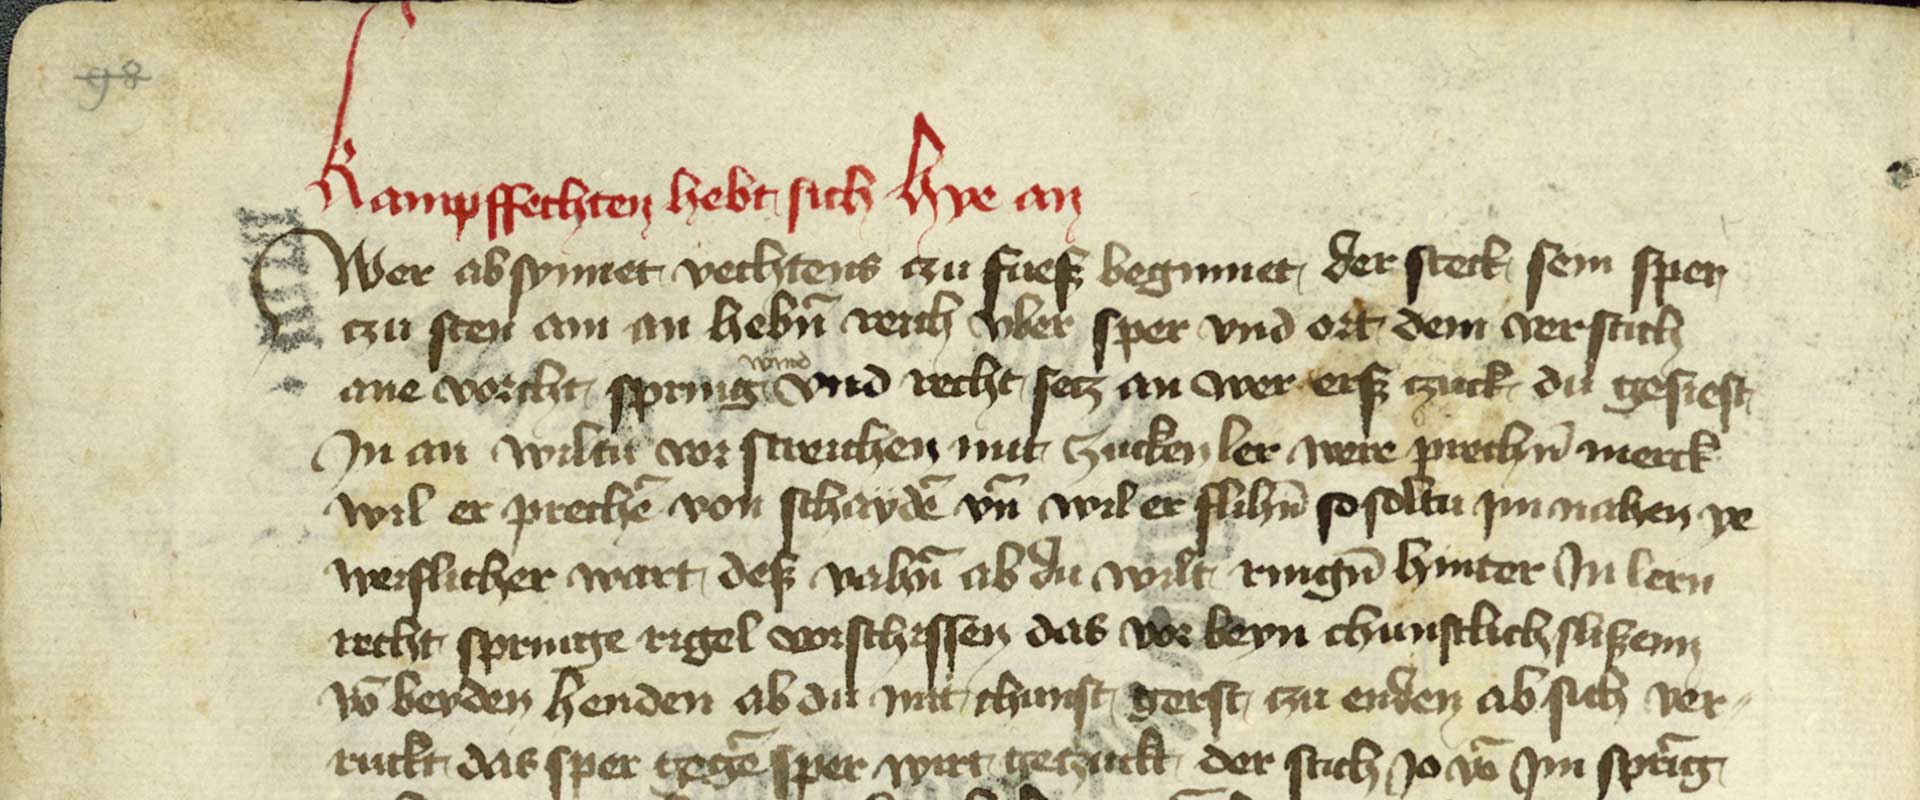 98
Kampffechten hebt sich hye an
Wer absynnet vechtens czu fuesß beginnet der steck sein sper
czu sten am an hebn̄ reich vber sper vnd ort dem ver stich
ane vorcht spring wind vnd recht secz an wer erß czuck du gesiest
In an wiltu vor streichen mit zucken ler were prechn̄ merck
wil er prechē von schaydē vn̄ wil er flihn̄ so soltu im nahen ye
weislicher wart deß vahn̄ ab du wilt ringn̄ hinter In lern
recht springe rigel vorschissen das vor beyn chunstlich slißenn
vō beyden henden ab du mit chunst gerst czu enden ab sich ver-
ruckt das sper gegē sper wirt geczuckt der stich Jo vō Im sprāg